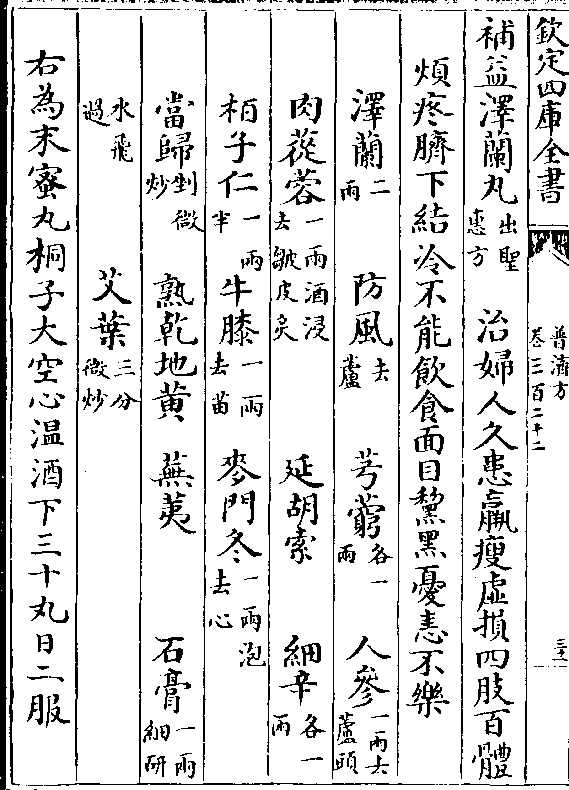 欽定四庫全書
普濟方
卷三百二十二
補益澤蘭丸出聖惠方 治婦人久患羸瘦虛損四肢百體
煩疼臍下結冷不能飲食面目黧黑憂恚不樂
澤蘭二兩 防風去蘆 芎藭各一兩 人參一兩去蘆頭
肉蓯蓉一兩酒浸去皺皮炙 延胡索 細辛各一兩
柏子仁一兩半 牛膝一兩去苗 麥門冬一兩泡去心
當歸剉微炒 熟乾地黄 蕪荑 石膏一兩細研
水飛過 艾葉三分微炒
右為末蜜丸桐子大空心温酒下三十丸日二服